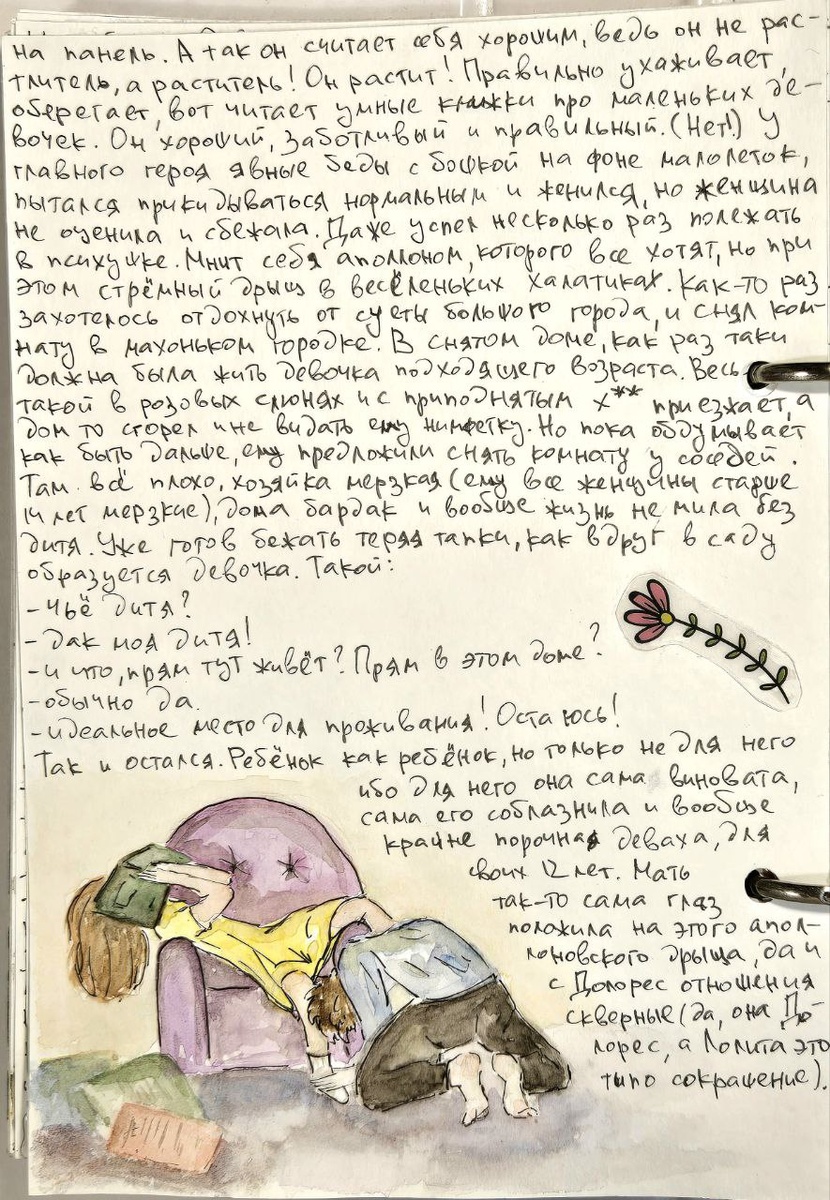 на панель. А так он считает себя хорошим, ведь он не рас-
тлитель, а раститель! Он растит! Правильно ухаживает,
оберегает, вот читает умные книжки про маленьких де-
вочек. Он хороший, заботливый и правильный. (Нет!) У
главного героя явные беды с бошкой на фоне малолеток,
пытался прикидываться нормальным и женился, но женщина
не оценила и сбежала. Даже успел несколько раз полежать
в психушке. Мнит себя аполлоном, которого все хотят, но при
этом стрёмный дрыщ в весёленьких халатиках. Как-то раз
захотелось отдохнуть от суеты большого города, и снял ком-
нату в махоньком городке. В снятом доме, как раз таки
должна была жить девочка подходящего возраста. Весь
такой в розовых слюнях и с приподнятым х** приезжает, а
дом то сгорел и не видать ему нимфетку. Но пока обдумывает
как быть дальше, ему предложили снять комнату у соседей.
Там всё плохо, хозяйка мерзкая (ему все женщины старше
14 лет мерзкие), дома бардак и вообще жизнь не мила без
дитя. Уже готов бежать теряя тапки, как вдруг в саду
образуется девочка. Такой:
- Чьё дитя?
- Дак моя дитя!
- и что, прям тут живёт? Прям в этом доме?
- обычно да.
- идеальное место для проживания! Остаюсь!
Так и остался. Ребёнок как ребёнок, но только не для него
ибо для него она сама виновата,
сама его соблазнила и вообще
крайне порочная деваха, для
своих 12 лет. Мать
так-то сама глаз
положила на этого апол-
лоновского дрыща, да и
с Долорес отношения
скверные (да, она До-
лорес, а Лолита это
типо сокращение).